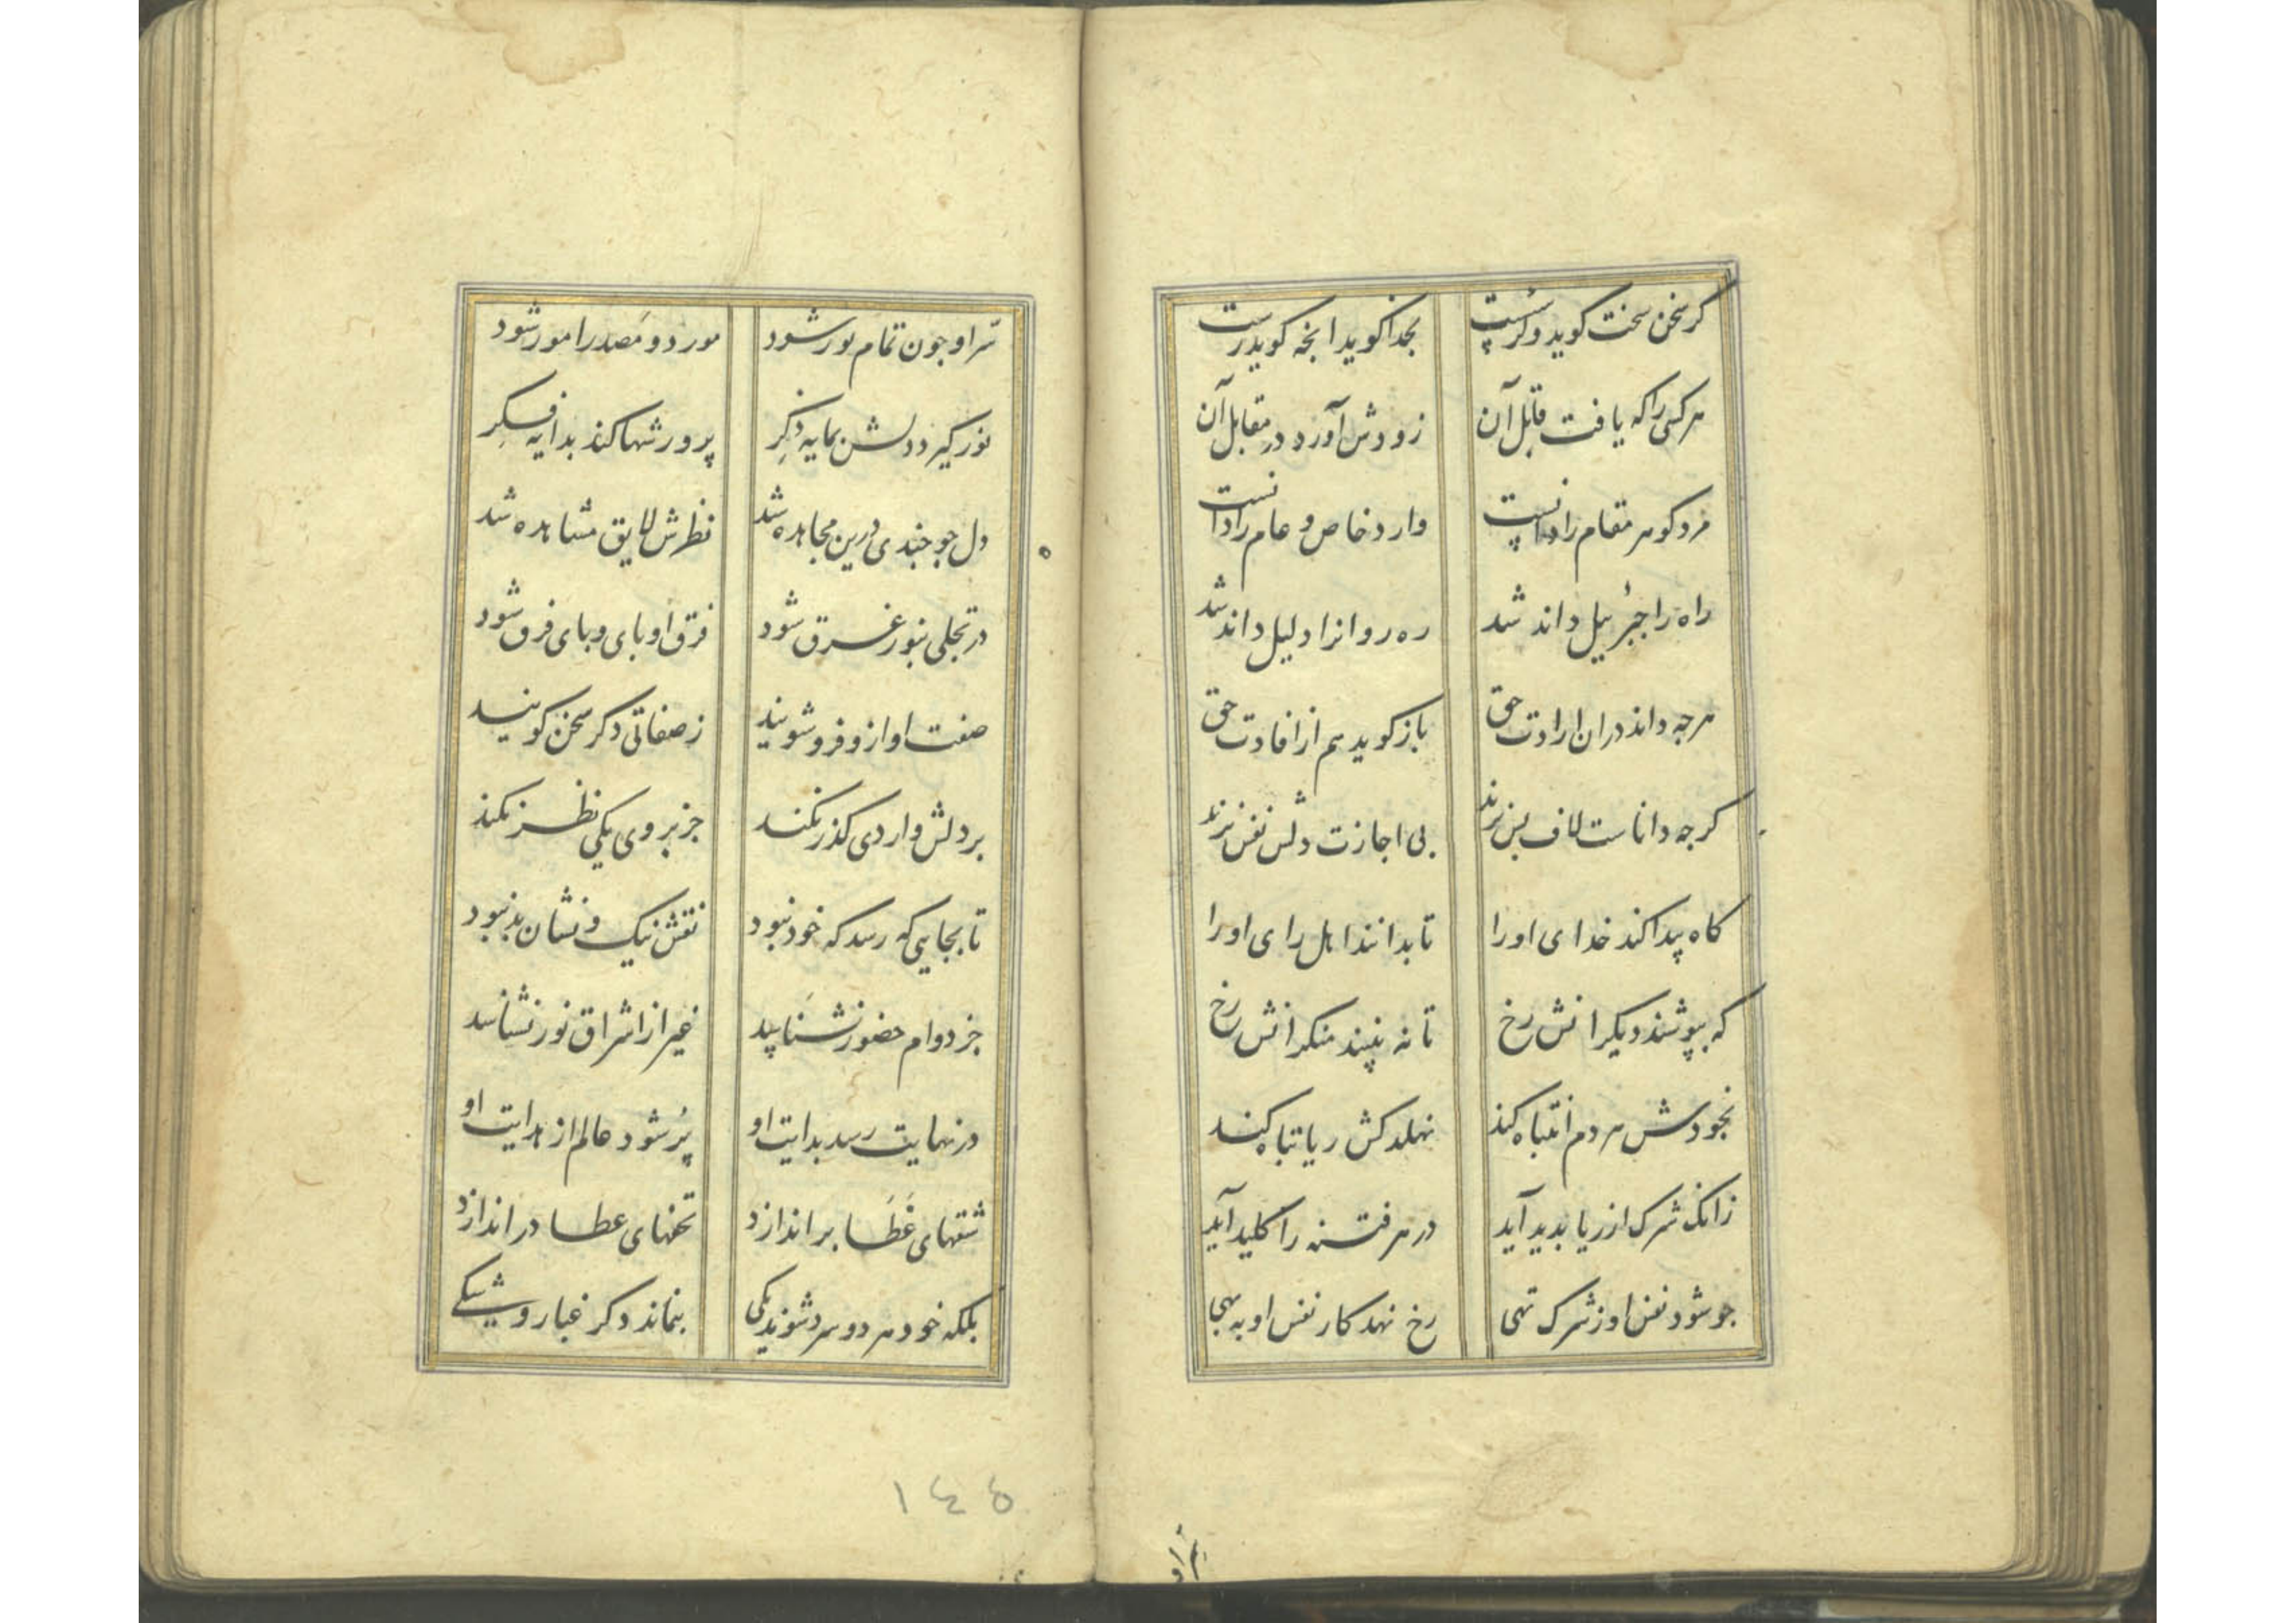 کر سخن سخت کوید و کر سست
بخدا کوید انچه کوید رست
هر کسی را که یافت قابل آن
زودش آورد در مقابل آن
مرد کو هر مقام را دانست
وارد خاص و عام را دانست
راه را جبرئیل داند شد
ره روانرا دلیل داند شد
هرچه داند دران ارادت حق
باز کوید هم از افادت حق
کرچه داناست لاف بس نزند
بی اجازت دلش نفس نزند
کاه پیدا کند خدای اورا
تا بدانند اهل رای اورا
که بپوشند دیکرانش رخ
تا نه بینند منکرانش رخ
بخودش هر دم انتباه کند
نهلد کش ریا تباه کند
زانک شرک از ریا بدید آید
در هر فتنه را کلید آید
جو شود نفس او ز شرک تهی
رخ نهد کار نفس او به بهی
سر او جون تمام نور شود
مورد و مصدر امور شود
نور کیرد دلش بمایه ذکر
پرورشها کند بدایه فکر
دل جو جندی درین مجاهده شد
نظرش لایق مشاهده شد
در تجلی بنور غرق شود
فرق او پای و پای فرق شود
صفت او ازو فرو شویند
ز صفاتی دکر سخن کویند
بر دلش واردی کذر نکند
جز بروی یکی نظر نکند
تا بجایی که رسد که خود نبود
نقش نیک و نشان بد نبود
جز دوام حضور نشناسد
غیر از اشراق نور نشناسد
در نهایت رسد بدایت او
پر شود عالم از هدایت او
شقهای غطا بر اندازد
تحفهای عطا در اندازد
بلکه خود هر دو سر شوند یکی
بنماند دکر غبار و شکی
١٤٥